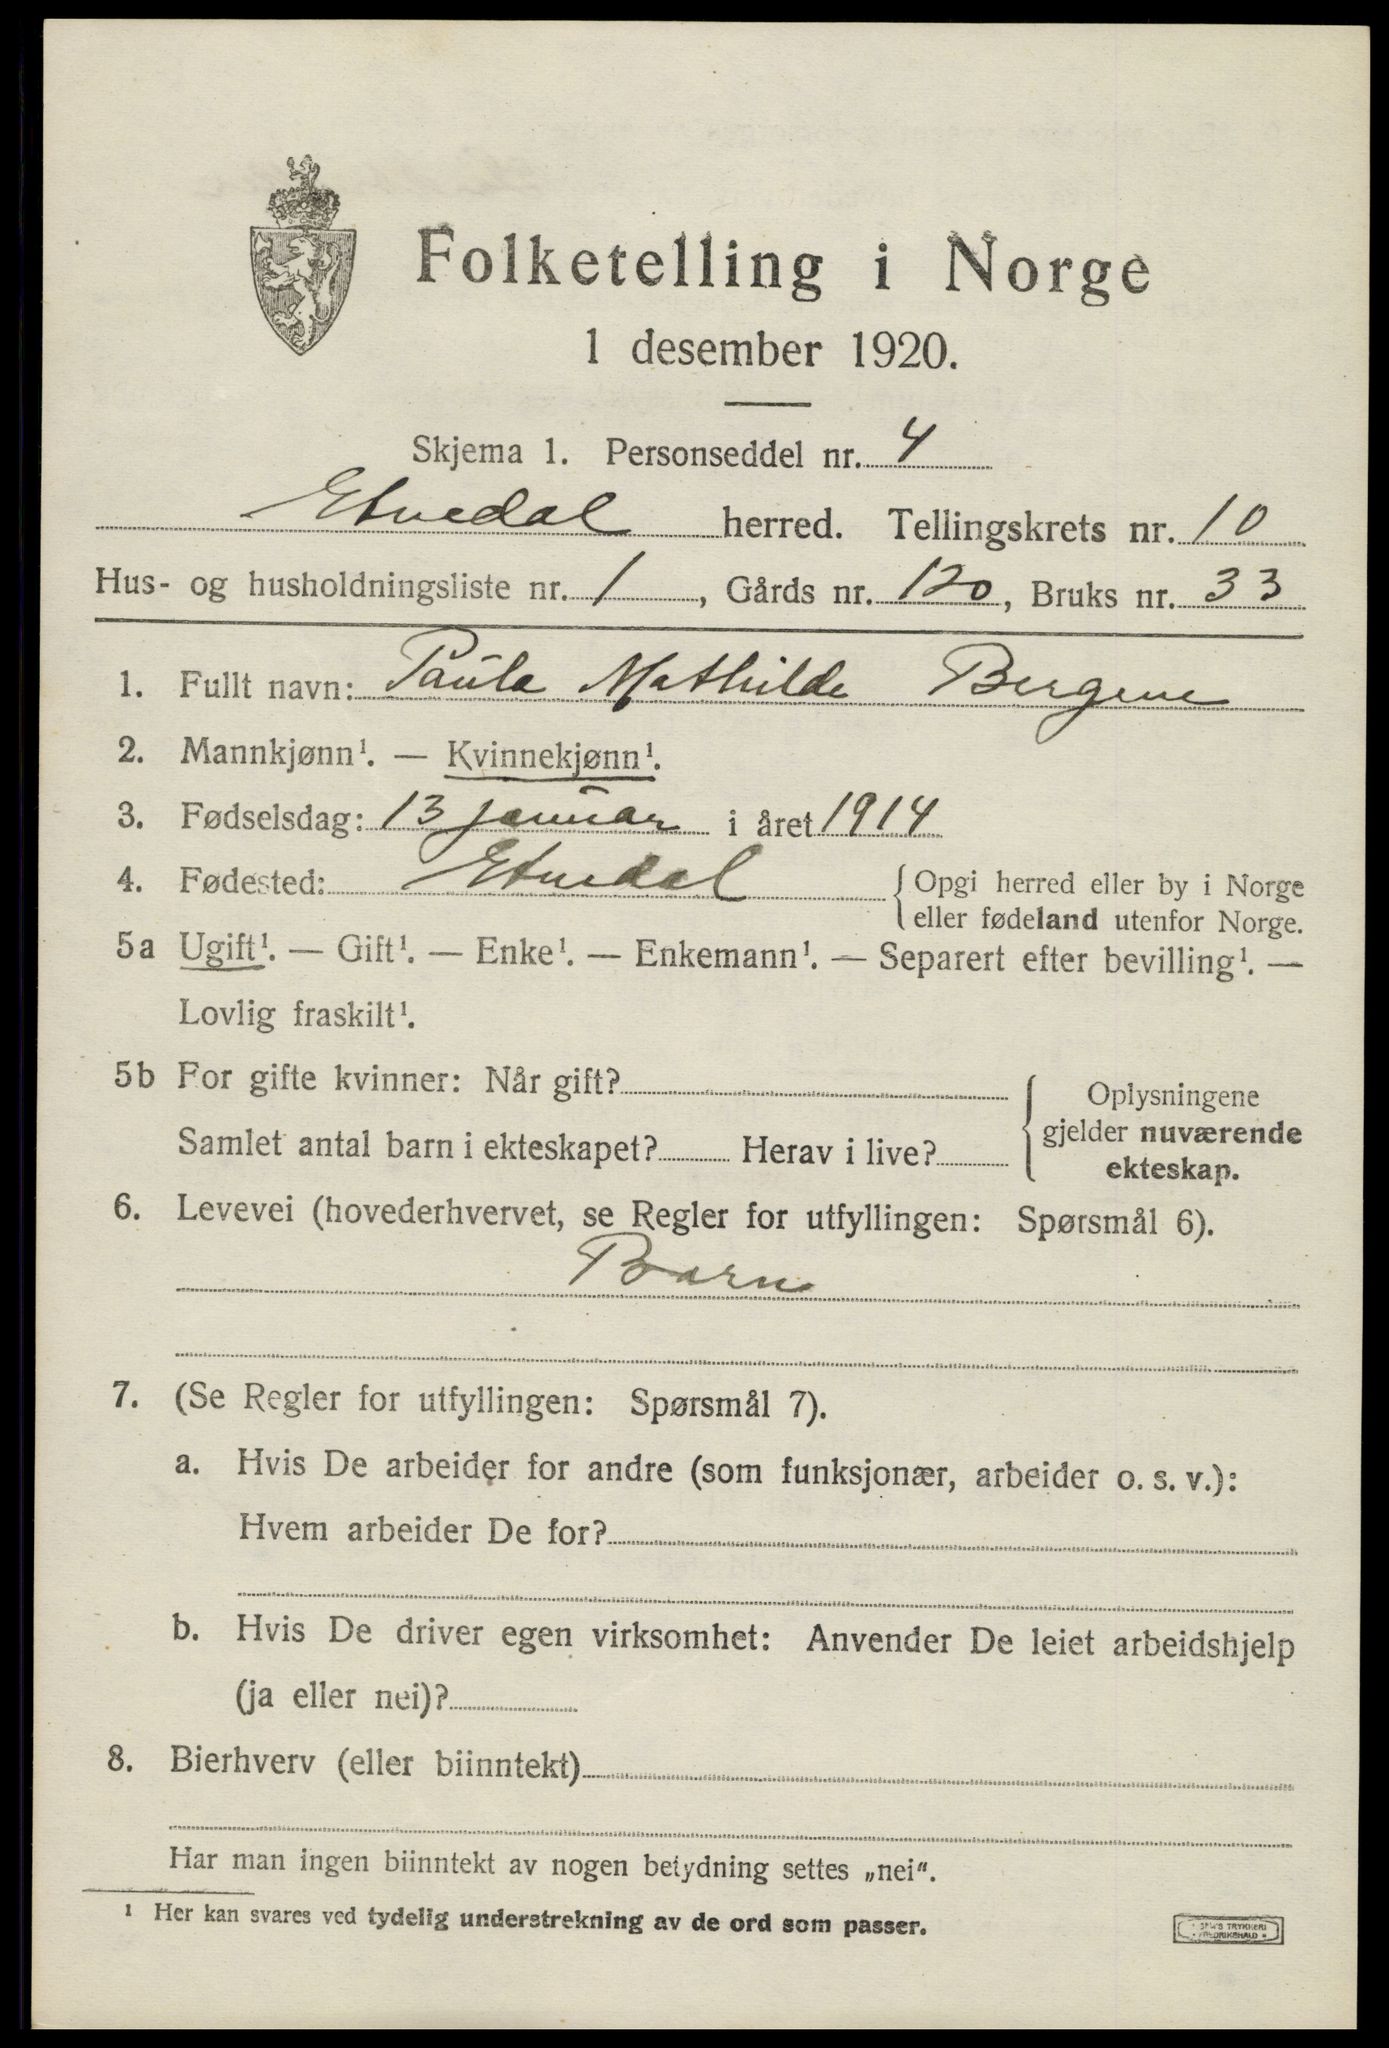 Folketelling i Norge
1 desember 1920.
Skjema 1. Personseddel nr. 4
Etnedal herred. Tellingskrets nr. 10
Hus- og husholdningsliste nr. 1, Gårds nr. 120, Bruks nr. 33
1. Fullt navn: Paula Mathilde Bergene
2. Mannkjønn¹. — Kvinnekjønn¹.
3. Fødselsdag: 13 januar i året 1914
4. Fødested: Etnedal { Opgi herred eller by i Norge
eller fødeland utenfor Norge.
5a Ugift¹. — Gift¹. — Enke¹. — Enkemann¹. — Separert efter bevilling¹. —
Lovlig fraskilt¹.
5b For gifte kvinner: Når gift?
Samlet antal barn i ekteskapet? Herav i live?
{ Oplysningene
gjelder nuværende
ekteskap.
6. Levevei (hovederhvervet, se Regler for utfyllingen: Spørsmål 6).
Barn
7. (Se Regler for utfyllingen: Spørsmål 7).
a. Hvis De arbeider for andre (som funksjonær, arbeider o. s. v.):
Hvem arbeider De for?
b. Hvis De driver egen virksomhet: Anvender De leiet arbeidshjelp
(ja eller nei)?
8. Bierhverv (eller biinntekt)
Har man ingen biinntekt av nogen betydning settes „nei".
¹ Her kan svares ved tydelig understrekning av de ord som passer.
TRYKKERI
FREDRIKSHALD